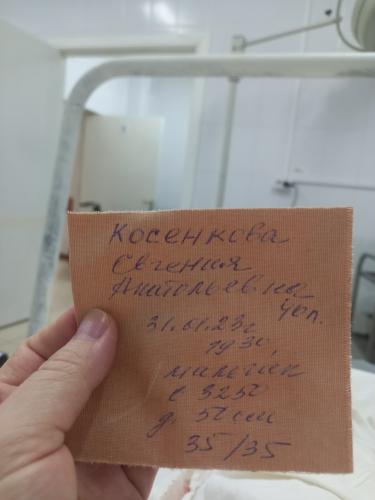 Косенкова
Евгения
Анатольевна
31.01.23г
19 30,
мальчик
в 3250
д. 50 см
35/35